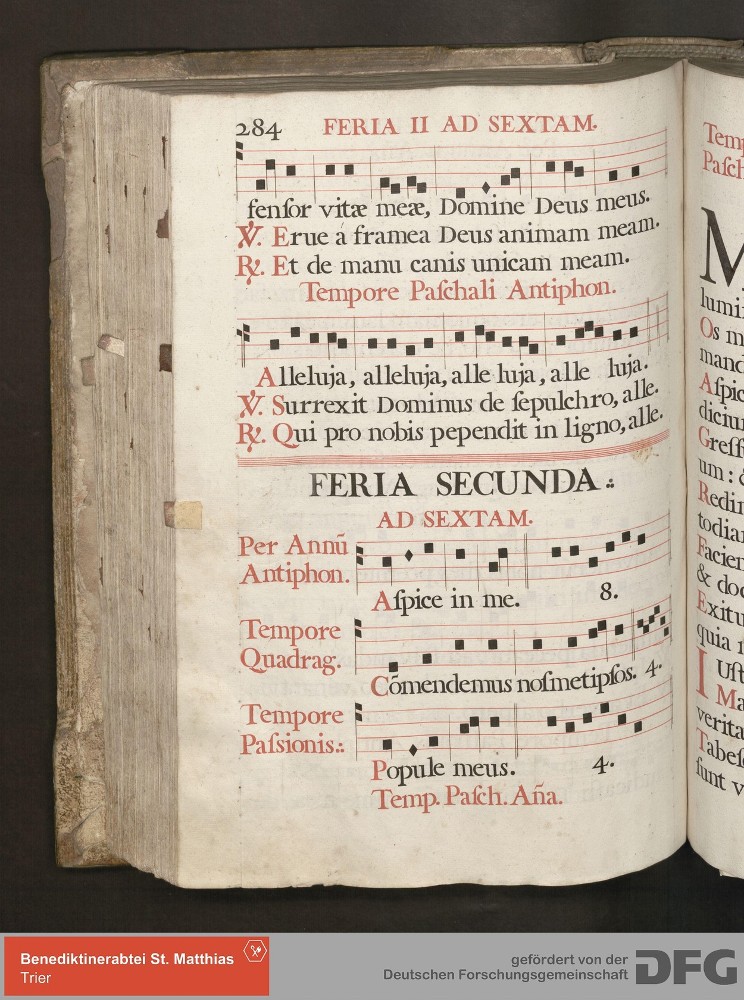 284 FERIA II AD SEXTAM.
ſenſor vitæ meæ, Domine Deus meus.
℣. Erue á framea Deus animam meam.
℟. Et de manu canis unicam meam.
Tempore Paſchali Antiphon.
Alleluja, alleluja, alle luja, alle luja.
℣. Surrexit Dominus de ſepulchro, alle.
℟. Qui pro nobis pependit in ligno, alle.
FERIA SECUNDA.
AD SEXTAM.
Per Annũ
Antiphon.
Aſpice in me. 8.
Tempore
Quadrag.
Cõmendemus noſmetipſos. 4.
Tempore
Paſsionis.
Popule meus. 4.
Temp. Paſch. Aña.
Temp
Paſch
M
lumi
Os m
mand
Aſpic
diciu
Greſſ
um: &
Redi
todia
Facien
& doc
Exitu
quia
I Uſt
Ma
verita
Tabeſ
ſunt v
Benediktinerabtei St. Matthias
Trier
gefördert von der
Deutschen Forschungsgemeinschaft DFG